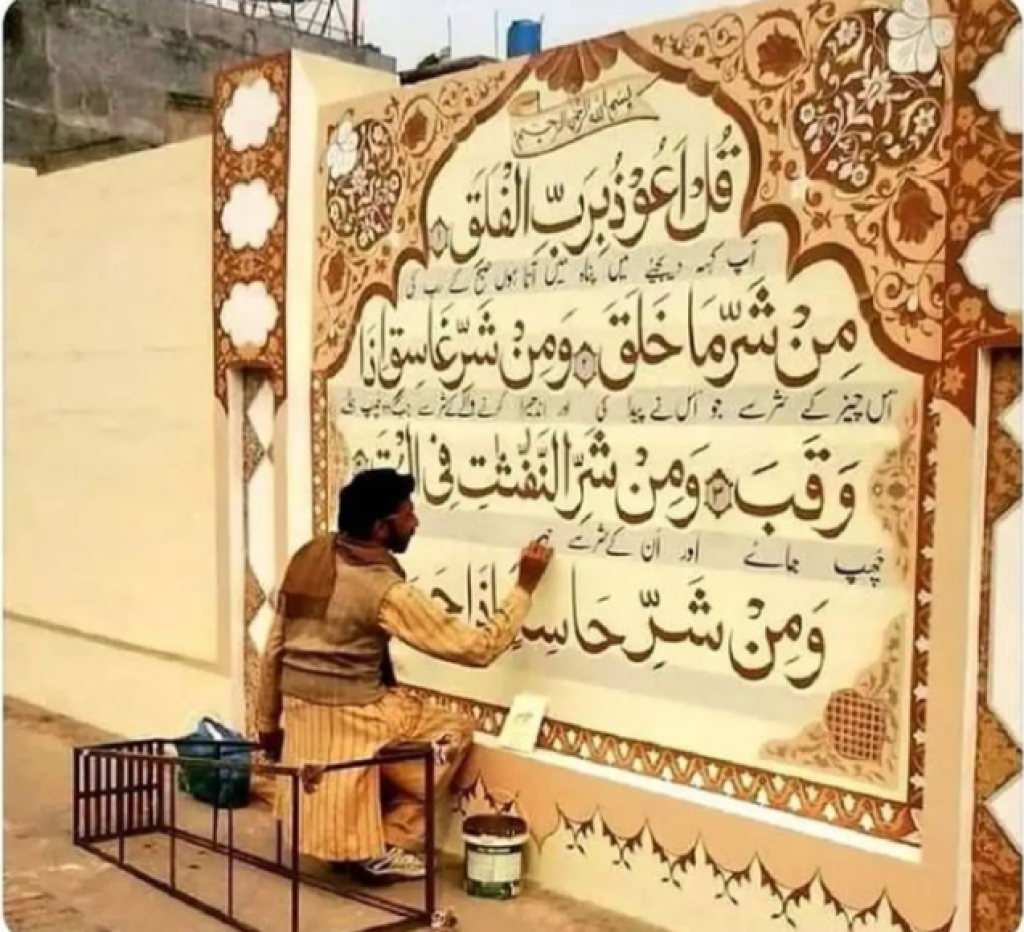 بسم الله الرحمن الرحيم
قُلْ اَعُوْذُ بِرَبِّ الْفَلَقِ ۱
آپ کہہ دیجئے میں پناہ میں آتا ہوں صبح کے رب کی
مِنْ شَرِّ مَا خَلَقَ ۲ وَمِنْ شَرِّ غَاسِقٍ اِذَا
اس چیز کے شر سے جو اس نے پیدا کی اور اندھیرا کرنے والے کے شر سے جب وہ چھپ
وَقَبَ ۳ وَمِنْ شَرِّ النَّفّٰثٰتِ فِی
چھپ جائے اور اُن کے شر سے
وَمِنْ شَرِّ حَاسِدٍ اِذَا